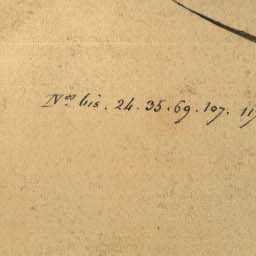 Nos bis. 24. 35. 69. 107. 11